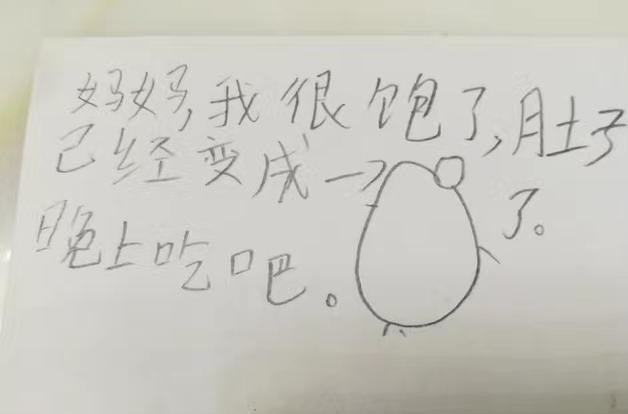 妈妈,我很饱了,肚子
已经变成一→了。
晚上吃吧。